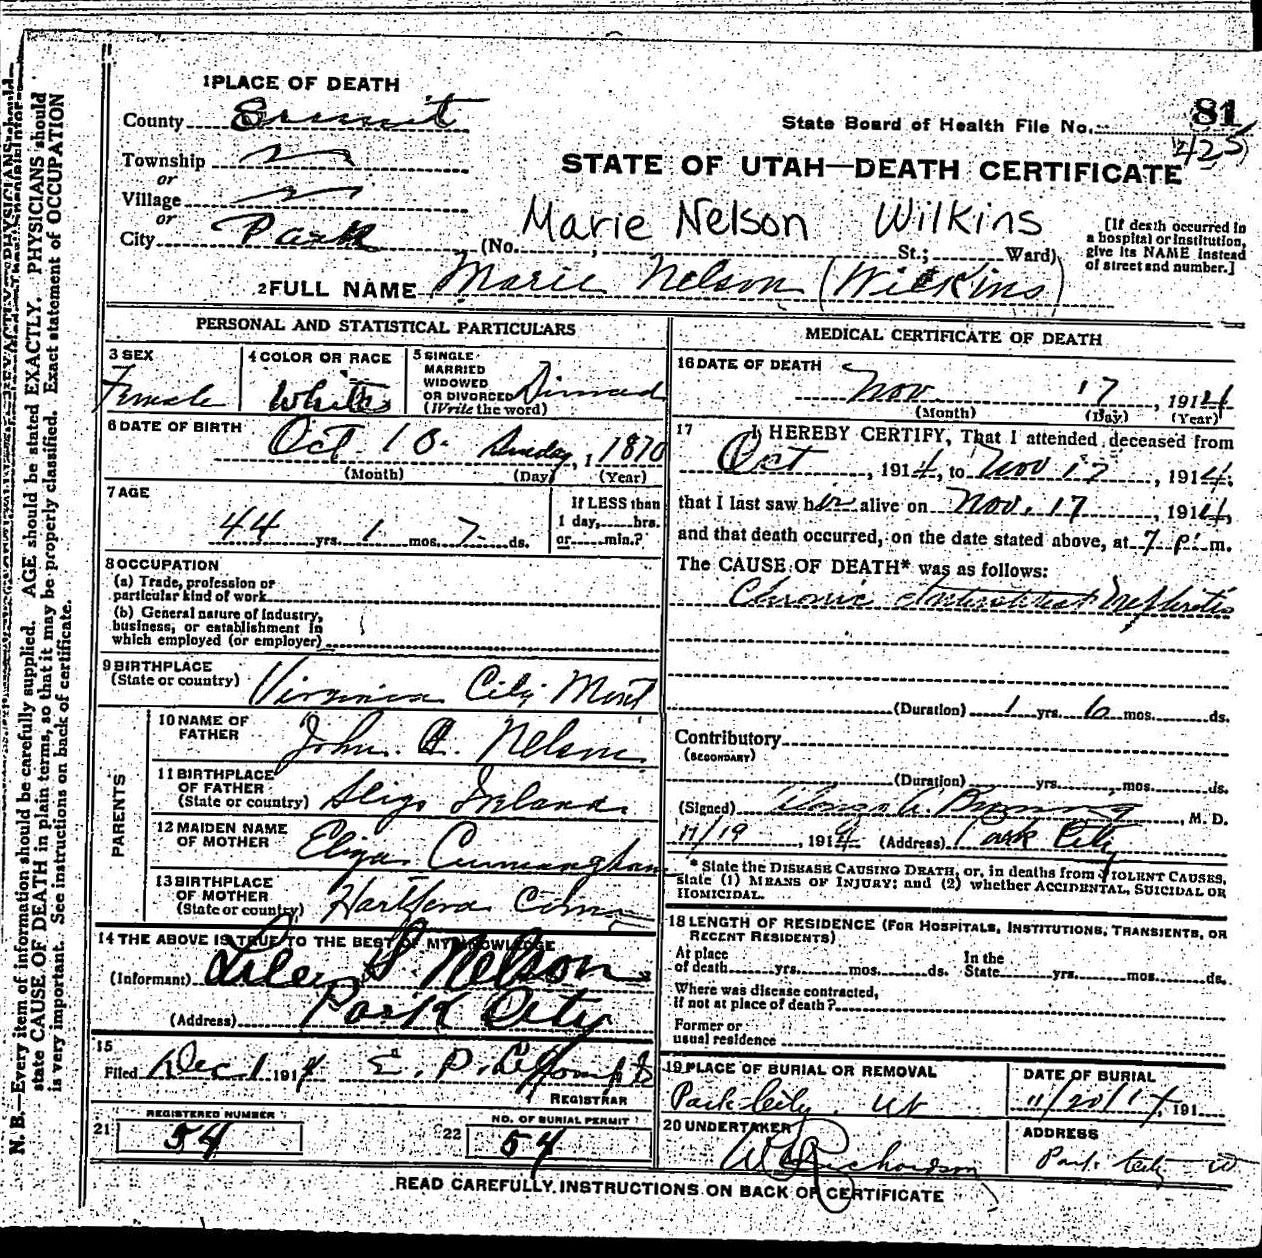 1 PLACE OF DEATH
County Summit
Township
or
Village
or
City Park
State Board of Health File No. 81
425
STATE OF UTAH—DEATH CERTIFICATE
Marie Nelson Wilkins
(No. St.; Ward)
[If death occurred in a hospital or institution, give its NAME instead of street and number.]
2 FULL NAME Marie Nelson (Wilkins)
PERSONAL AND STATISTICAL PARTICULARS
3 SEX
Female
4 COLOR OR RACE
White
5 SINGLE
MARRIED
WIDOWED
OR DIVORCED
(Write the word)
6 DATE OF BIRTH Oct 10 1870
(Month) (Day) (Year)
7 AGE
44 yrs. 1 mos. 7 ds.
If LESS than
1 day, hrs.
or min.?
8 OCCUPATION
(a) Trade, profession or
particular kind of work
(b) General nature of industry,
business, or establishment in
which employed (or employer)
9 BIRTHPLACE
(State or country) Virginia City Mont
PARENTS
10 NAME OF
FATHER John Nelson
11 BIRTHPLACE
OF FATHER
(State or country) Sligo Ireland
12 MAIDEN NAME
OF MOTHER Eliza Cunningham
13 BIRTHPLACE
OF MOTHER
(State or country) Hartford Conn
14 THE ABOVE IS TRUE TO THE BEST OF MY KNOWLEDGE
(Informant) Nelson
(Address) Park City
15
Filed Dec 1 1914 E. P.
REGISTRAR
21 REGISTERED NUMBER
54
22 NO. OF BURIAL PERMIT
54
MEDICAL CERTIFICATE OF DEATH
16 DATE OF DEATH
Nov 17, 1914
(Month) (Day) (Year)
17 I HEREBY CERTIFY, That I attended deceased from
Oct, 1914, to Nov 17, 1914,
that I last saw her alive on Nov. 17, 1914,
and that death occurred, on the date stated above, at 7 P. m.
The CAUSE OF DEATH* was as follows:
Chronic Interstitial Nephritis
(Duration) 1 yrs. 6 mos. ds.
Contributory
(SECONDARY)
(Duration) yrs. mos. ds.
(Signed) M. D.
11/19, 1914 (Address) Park City
* State the DISEASE CAUSING DEATH, or, in deaths from VIOLENT CAUSES,
state (1) MEANS OF INJURY; and (2) whether ACCIDENTAL, SUICIDAL OR
HOMICIDAL.
18 LENGTH OF RESIDENCE (FOR HOSPITALS, INSTITUTIONS, TRANSIENTS, OR
RECENT RESIDENTS)
At place
of death yrs. mos. ds. In the
State yrs. mos. ds.
Where was disease contracted,
if not at place of death?
Former or
usual residence
19 PLACE OF BURIAL OR REMOVAL
Park City. Ut
DATE OF BURIAL
11/20/14, 191
20 UNDERTAKER
Richardson
ADDRESS
Park City
READ CAREFULLY INSTRUCTIONS ON BACK OF CERTIFICATE
N. B.—Every item of information should be carefully supplied. AGE should be stated EXACTLY. PHYSICIANS should
state CAUSE OF DEATH in plain terms, so that it may be properly classified. Exact statement of OCCUPATION
is very important. See instructions on back of certificate.